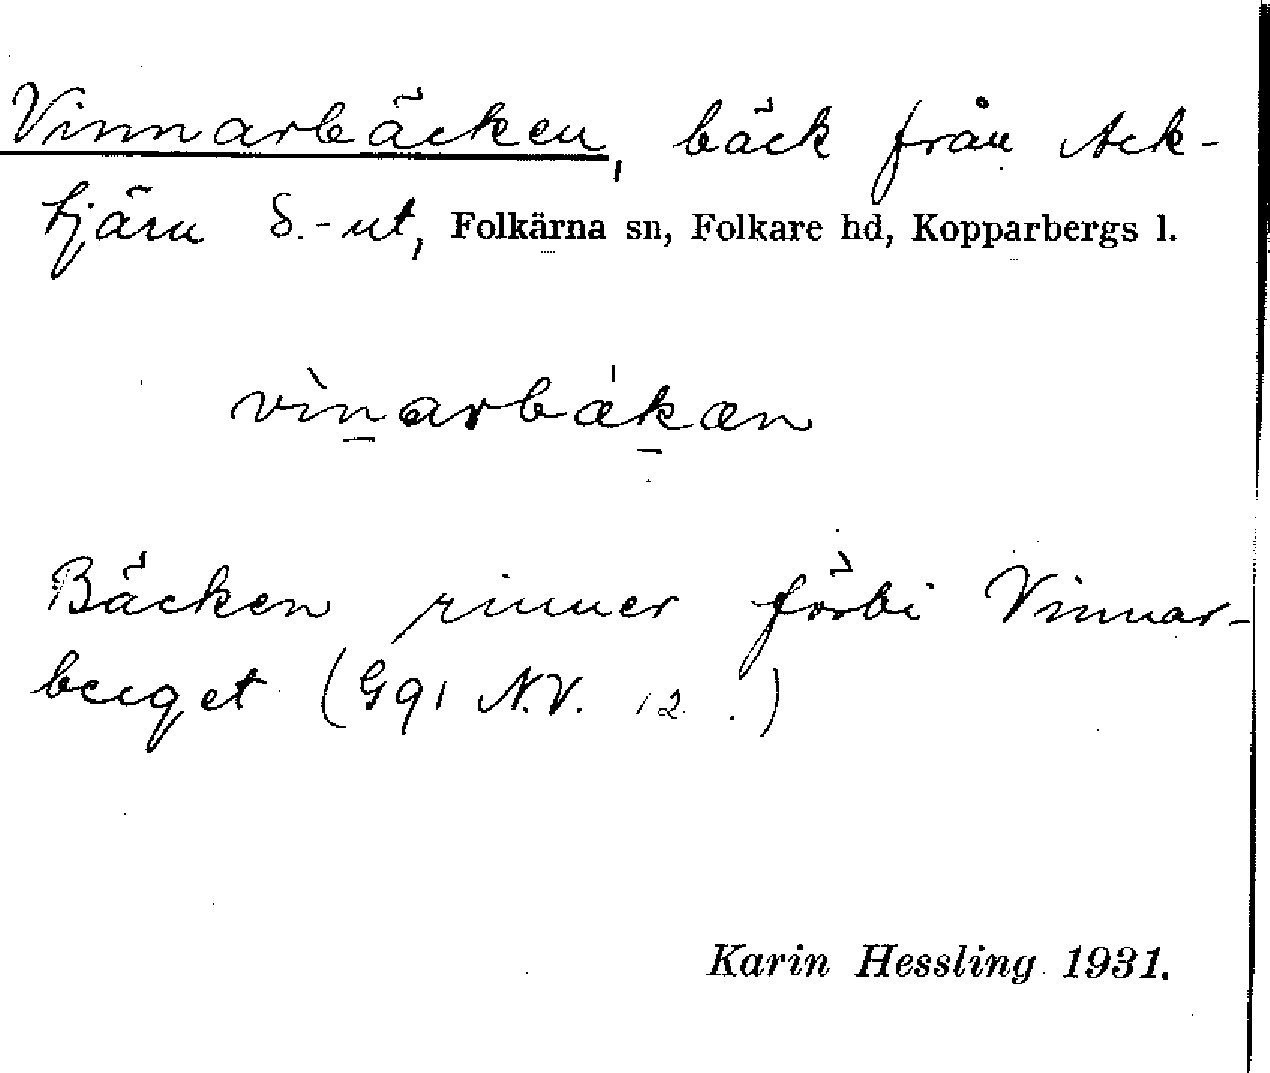 Vinnarbäcken, bäck från Ack-
tjärn S.-ut, Folkärna sn, Folkare hd, Kopparbergs l.
vìnarbækæn
Bäcken rinner förbi Vinnar-
berget (G91 N.V. 12.)
Karin Hessling 1931.